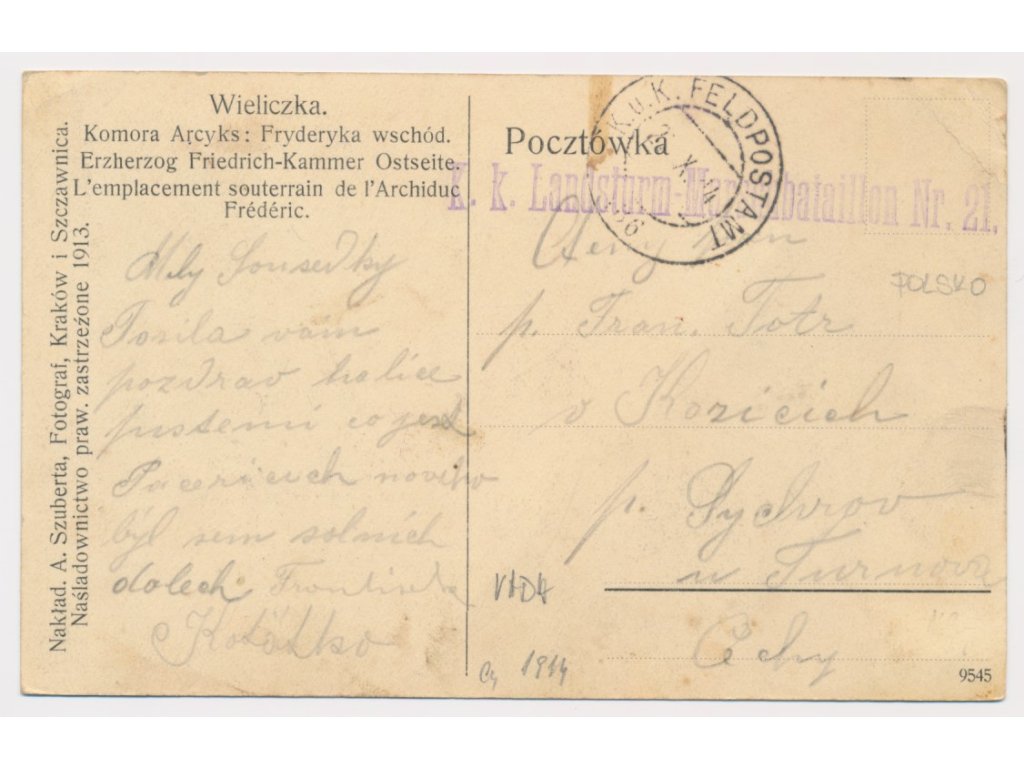 Wieliczka.
Komora Arcyks: Fryderyka wschód.
Erzherzog Friedrich-Kammer Ostseite.
L'emplacement souterrain de l'Archiduc
Frédéric.
Nakład. A. Szuberta, Fotograf, Kraków i Szczawnica.
Naśladownictwo praw. zastrzeżone 1913.
Mily Sousedky
Posila vám
pozdrav halice
co jest
nového
byl sem solnich
dolech
Pocztówka
K.U.K. FELDPOSTAMT
X. 14
K. k. Landsturm-Marschbataillon Nr. 21.
pan
POLSKO
p. Fran.
v Kozicich
p. Sychrov
u Turnova
Čechy
1914
9545